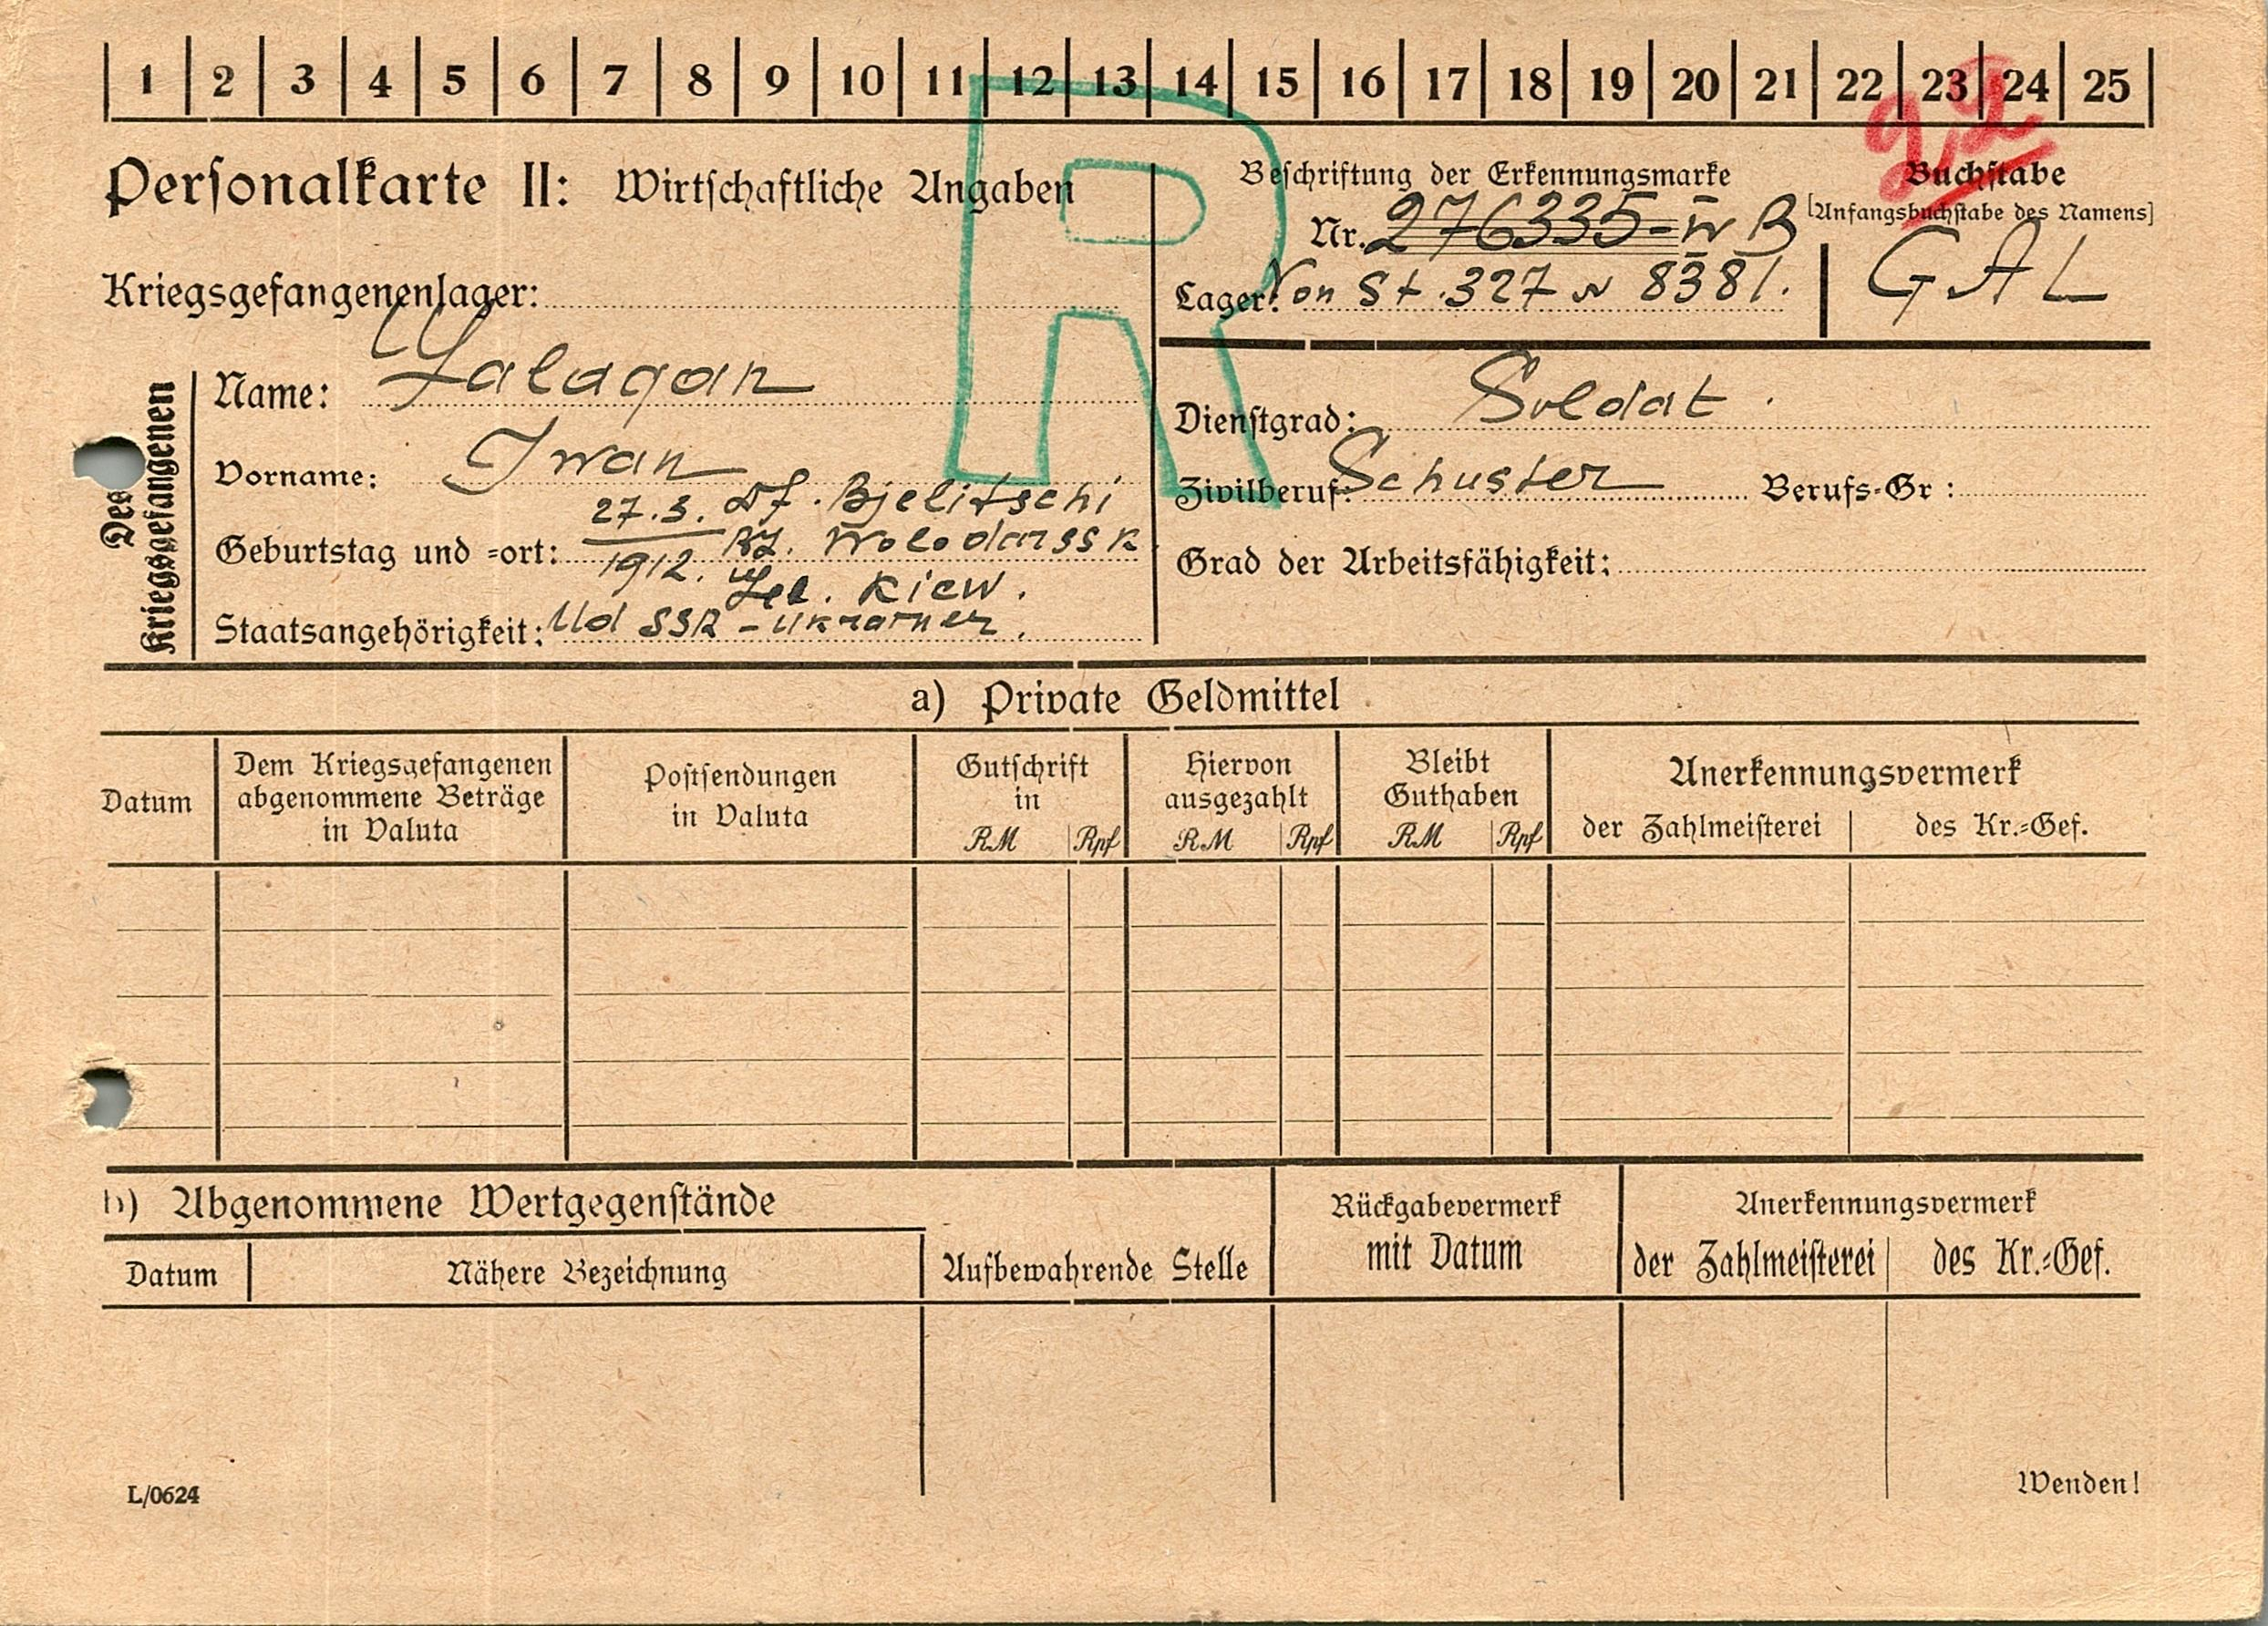 1 2 3 4 5 6 7 8 9 10 11 12 13 14 15 16 17 18 19 20 21 22 23 24 25
Personalkarte II: Wirtschaftliche Angaben
R
Beschriftung der Erkennungsmarke
Nr. 276335-IV B
Lager: Von St. 327 N 8381.
Buchstabe
[Anfangsbuchstabe des Namens]
GAL
Kriegsgefangenenlager:
Des Kriegsgefangenen
Name: Galagan
Vorname: Iwan
Geburtstag und -ort: 27.3. 1912. Df. Bjelitschi
RJ. Wolodarssk
Kiew.
Staatsangehörigkeit: UdSSR - Ukrainer.
Dienstgrad: Soldat.
Zivilberuf: Schuster Berufs-Gr:
Grad der Arbeitsfähigkeit:
a) Private Geldmittel
Datum
Dem Kriegsgefangenen
abgenommene Beträge
in Valuta
Postsendungen
in Valuta
Gutschrift
in
RM Rpf
Hiervon
ausgezahlt
RM Rpf
Bleibt
Guthaben
RM Rpf
Anerkennungsvermerk
der Zahlmeisterei des Kr.-Gef.
b) Abgenommene Wertgegenstände
Datum Nähere Bezeichnung
Aufbewahrende Stelle
Rückgabevermerk
mit Datum
Anerkennungsvermerk
der Zahlmeisterei des Kr.-Gef.
L/0624
Wenden!